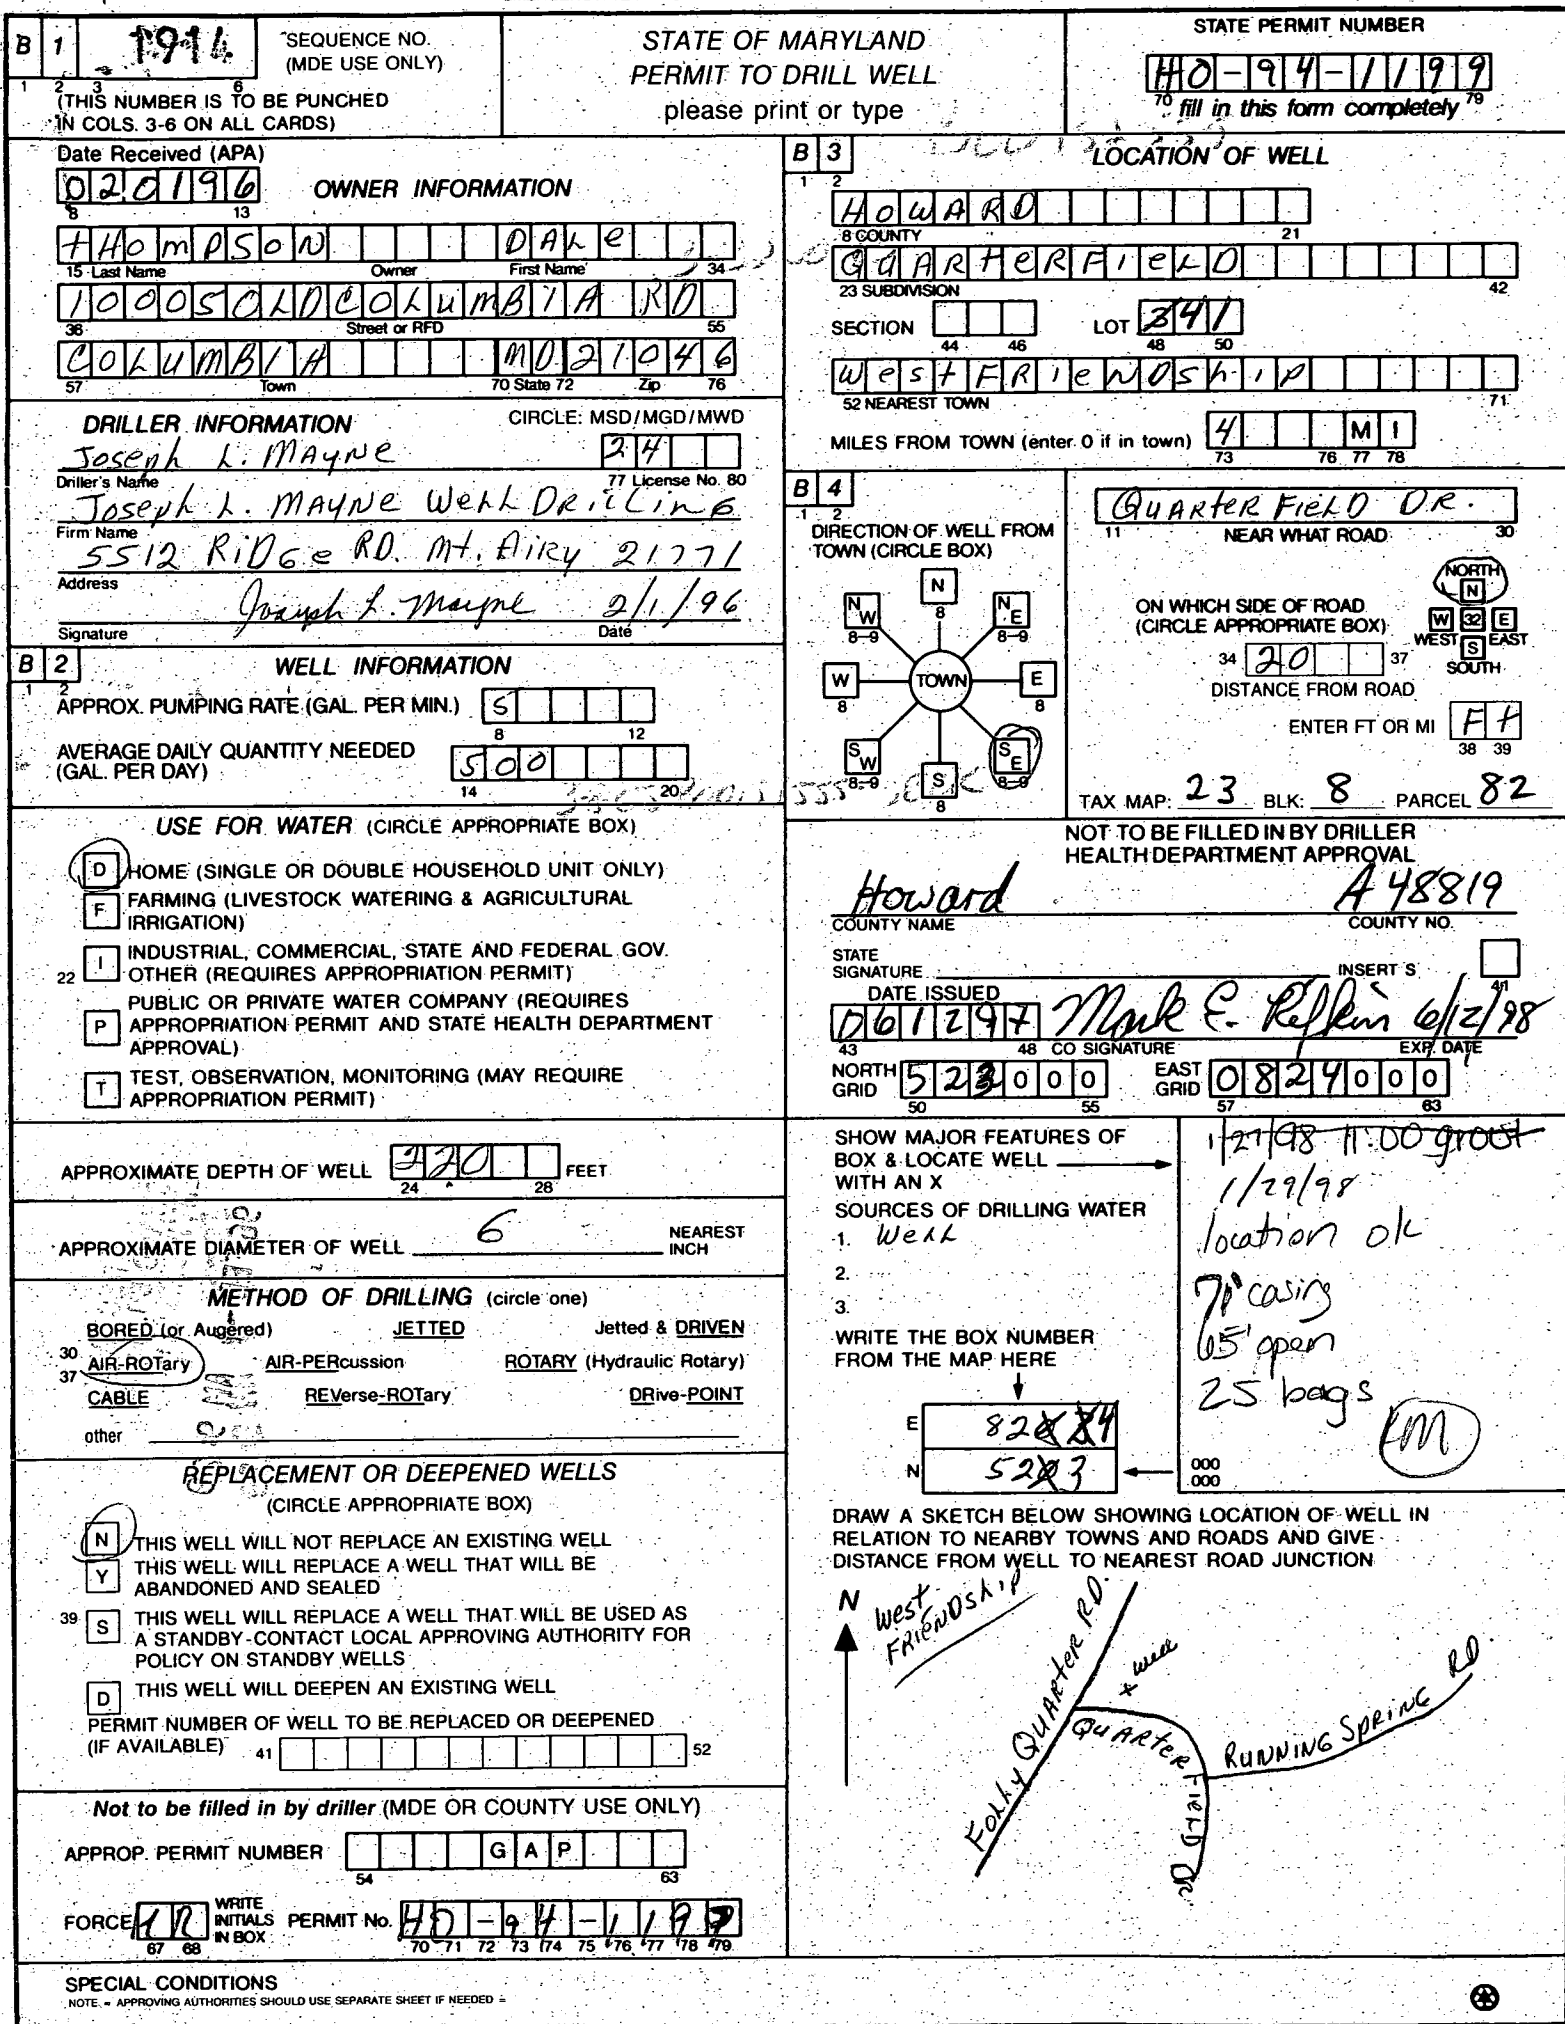 B 1 1914 SEQUENCE NO. (MDE USE ONLY)
1 2 3 6
(THIS NUMBER IS TO BE PUNCHED
IN COLS. 3-6 ON ALL CARDS)
STATE OF MARYLAND
PERMIT TO DRILL WELL
please print or type
STATE PERMIT NUMBER
HO-94-1199
70 fill in this form completely 79
Date Received (APA)
020196
8 13
OWNER INFORMATION
tHOmPSON DALe
15 Last Name Owner First Name 34
10005OLDCOLumBIA RD
36 Street or RFD 55
COLUMBIA MD21046
57 Town 70 State 72 Zip 76
DRILLER INFORMATION
CIRCLE: MSD/MGD/MWD
Joseph L. MAyNe 24
Driller's Name 77 License No. 80
Joseph L. MAyNe WeLL DRiLLinG
Firm Name
5512 RiDGe RD. Mt. Airy 21771
Address
Joseph L. Mayne 2/1/96
Signature Date
B 2 WELL INFORMATION
1 2
APPROX. PUMPING RATE (GAL. PER MIN.) 5
8 12
AVERAGE DAILY QUANTITY NEEDED
(GAL. PER DAY) 500
14 20
USE FOR WATER (CIRCLE APPROPRIATE BOX)
D HOME (SINGLE OR DOUBLE HOUSEHOLD UNIT ONLY)
F FARMING (LIVESTOCK WATERING & AGRICULTURAL
IRRIGATION)
22 I INDUSTRIAL, COMMERCIAL, STATE AND FEDERAL GOV.
OTHER (REQUIRES APPROPRIATION PERMIT)
P PUBLIC OR PRIVATE WATER COMPANY (REQUIRES
APPROPRIATION PERMIT AND STATE HEALTH DEPARTMENT
APPROVAL)
T TEST, OBSERVATION, MONITORING (MAY REQUIRE
APPROPRIATION PERMIT)
APPROXIMATE DEPTH OF WELL 220 FEET
24 28
APPROXIMATE DIAMETER OF WELL 6 NEAREST INCH
METHOD OF DRILLING (circle one)
BORED (or Augered) JETTED Jetted & DRIVEN
30 AIR-ROTary AIR-PERcussion ROTARY (Hydraulic Rotary)
37
CABLE REVerse-ROTary DRive-POINT
other
REPLACEMENT OR DEEPENED WELLS
(CIRCLE APPROPRIATE BOX)
N THIS WELL WILL NOT REPLACE AN EXISTING WELL
Y THIS WELL WILL REPLACE A WELL THAT WILL BE
ABANDONED AND SEALED
39 S THIS WELL WILL REPLACE A WELL THAT WILL BE USED AS
A STANDBY-CONTACT LOCAL APPROVING AUTHORITY FOR
POLICY ON STANDBY WELLS
D THIS WELL WILL DEEPEN AN EXISTING WELL
PERMIT NUMBER OF WELL TO BE REPLACED OR DEEPENED
(IF AVAILABLE) 41 52
Not to be filled in by driller (MDE OR COUNTY USE ONLY)
APPROP. PERMIT NUMBER GAP
54 63
FORCE WRITE INITIALS IN BOX PERMIT No. HO-94-1199
67 68 70 71 72 73 74 75 76 77 78 79
SPECIAL CONDITIONS
NOTE = APPROVING AUTHORITIES SHOULD USE SEPARATE SHEET IF NEEDED =
B 3 LOCATION OF WELL
1 2
HOWARD
8 COUNTY 21
QUARterFieLD
23 SUBDIVISION 42
SECTION LOT 41
44 46 48 50
West FRieNDship
52 NEAREST TOWN 71
MILES FROM TOWN (enter 0 if in town) 4 MI
73 76 77 78
B 4
1 2
DIRECTION OF WELL FROM
TOWN (CIRCLE BOX)
N 8
NW 8-9 NE 8-9
W 8 TOWN E 8
SW 8-9 SE 8-9
S 8
QuARter FieLD DR.
11 NEAR WHAT ROAD 30
ON WHICH SIDE OF ROAD
(CIRCLE APPROPRIATE BOX)
NORTH N
W 32 E
WEST EAST
S SOUTH
34 20 37
DISTANCE FROM ROAD
ENTER FT OR MI Ft
38 39
TAX MAP: 23 BLK: 8 PARCEL 82
NOT TO BE FILLED IN BY DRILLER
HEALTH DEPARTMENT APPROVAL
Howard A 48819
COUNTY NAME COUNTY NO.
STATE
SIGNATURE INSERT S
41
DATE ISSUED
061297 Mark E. Rifkin 6/12/98
43 48 CO SIGNATURE EXP. DATE
NORTH GRID 523000 EAST GRID 0824000
50 55 57 63
SHOW MAJOR FEATURES OF
BOX & LOCATE WELL
WITH AN X
SOURCES OF DRILLING WATER
1. WeLL
2.
3.
WRITE THE BOX NUMBER
FROM THE MAP HERE
E 824
N 523
000
000
1/27/98 11:00 grout
1/29/98
location ok
71' casing
65' open
25 bags
DRAW A SKETCH BELOW SHOWING LOCATION OF WELL IN
RELATION TO NEARBY TOWNS AND ROADS AND GIVE
DISTANCE FROM WELL TO NEAREST ROAD JUNCTION
N
West
FRieNDship
FoLLy QUARter RD.
x well
QUARterFieLD Dr.
RuNNiNG SpRiNG RD.